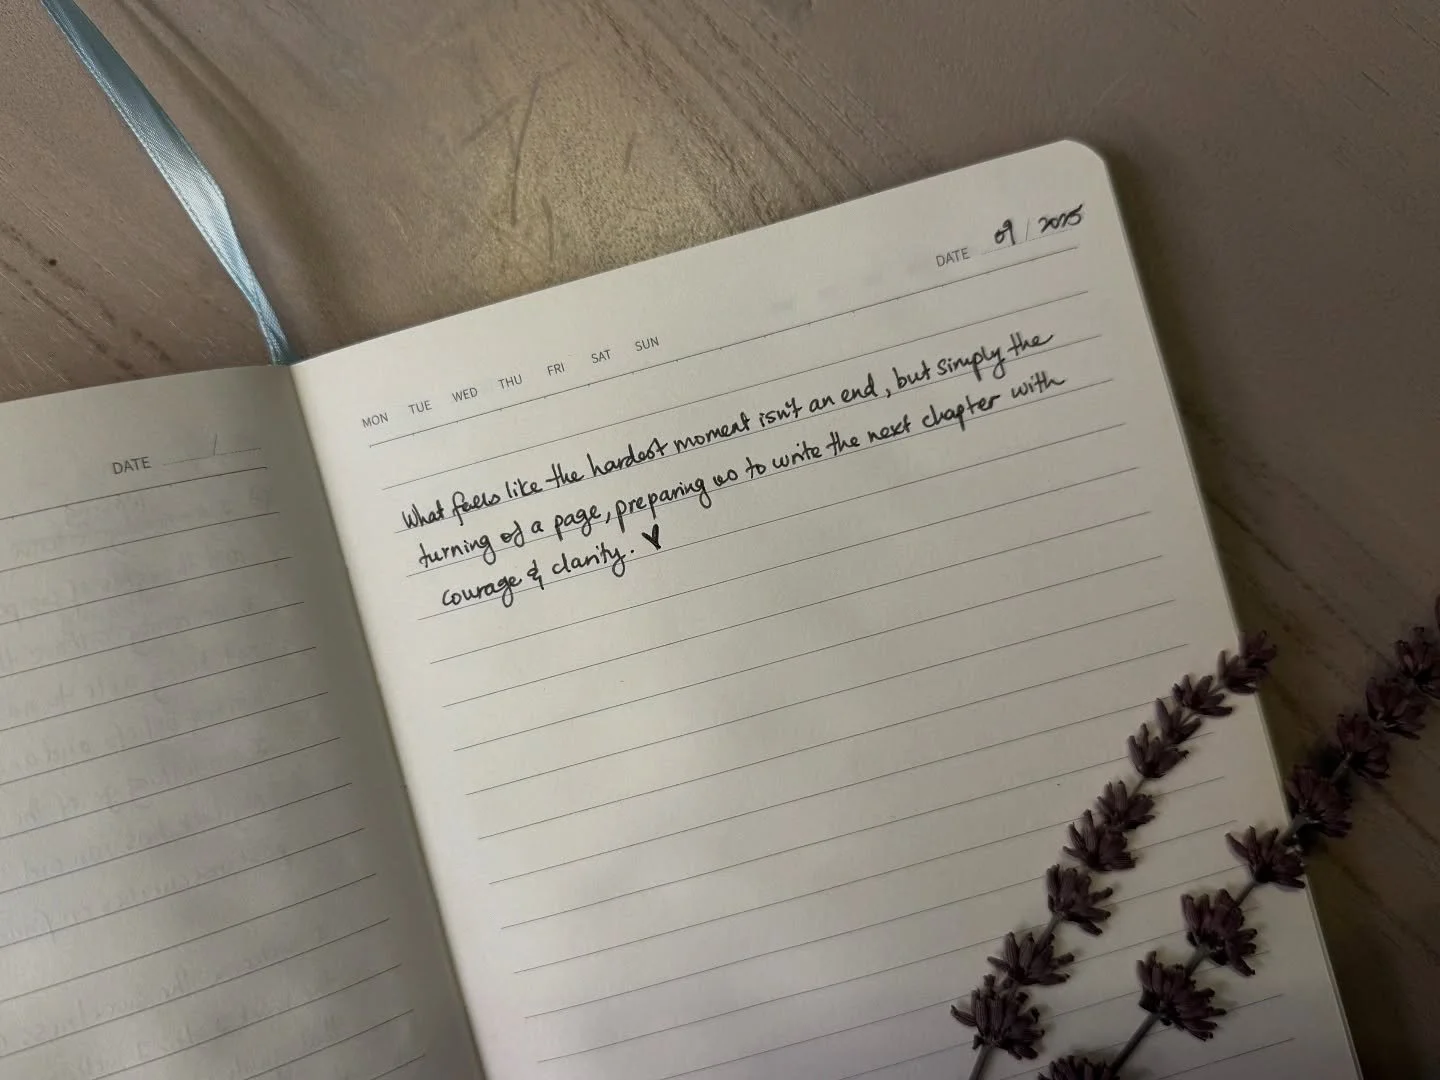 DATE 09 / 2025
MON TUE WED THU FRI SAT SUN
What feels like the hardest moment isn't an end, but simply the
turning of a page, preparing us to write the next chapter with
courage & clarity. ♥
DATE /